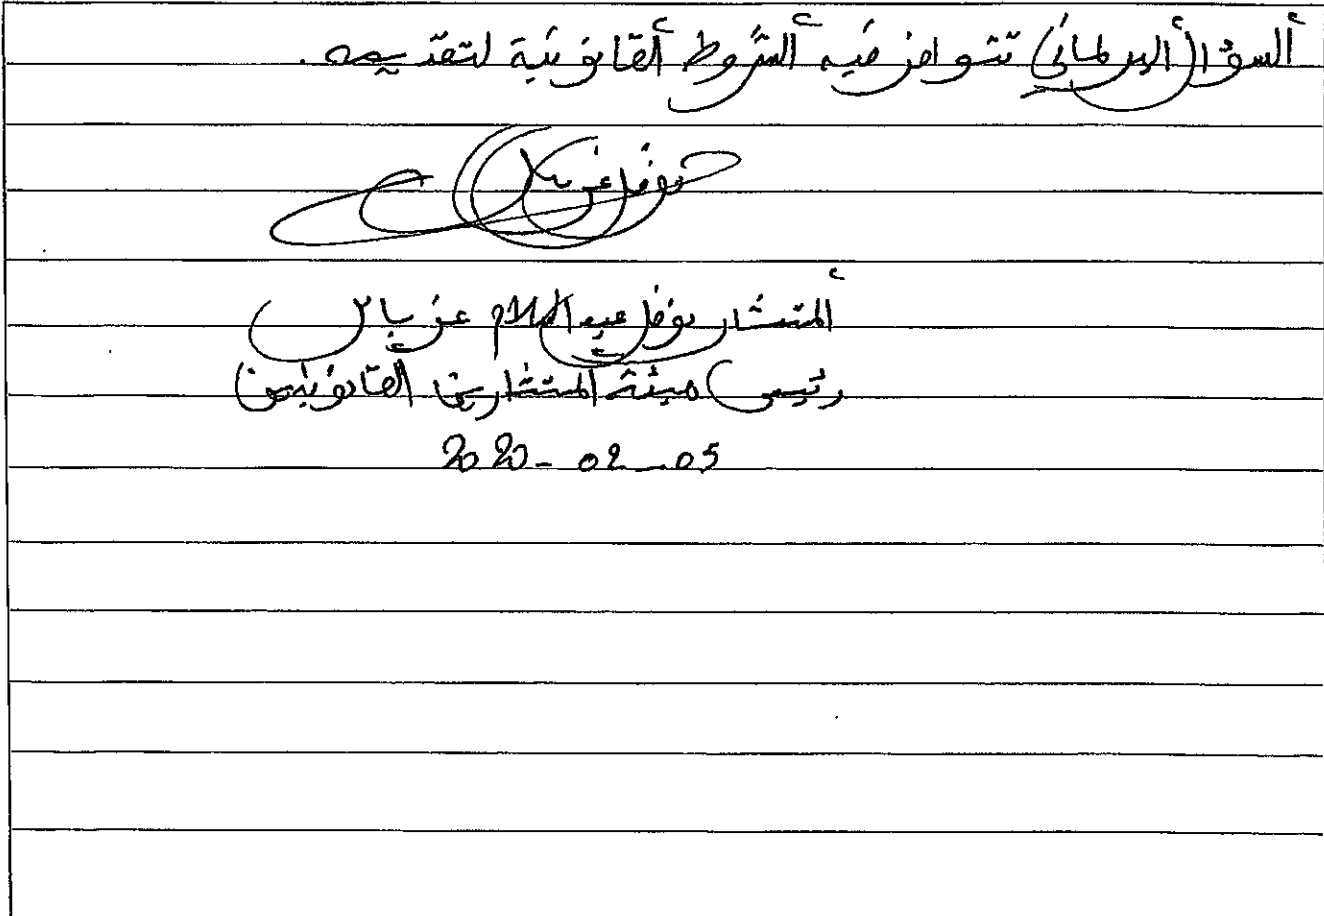 ألسؤال ألبرلماني تتوافر فيه ألشروط ألقانونية لتقديمه.
نوفل غربال
ألمستشار نوفل عبد السلام غربال
رئيس هيئة المستشارين القانونيين
2020-02-05